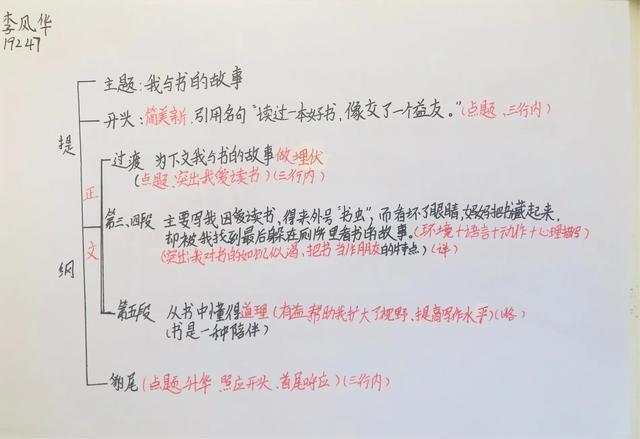 李风华
19247
主题:我与书的故事
开头:简美新,引用名句“读过一本好书,像交了一个益友。”(点题、三行内)
提纲
正文
过渡 为下文我与书的故事做埋伏
(点题、突出我爱读书)(三行内)
第三、四段 主要写我因爱读书,得来外号“书虫”,而看坏了眼睛,妈妈把书藏起来,
却被我找到最后躲在厕所里看书的故事。(环境+语言+动作+心理描写)
(突出我对书的如饥似渴,把书当作朋友的特点)(详)
第五段 从书中懂得道理(有益,帮助我扩大了视野,提高写作水平)(略)
(书是一种陪伴)
豹尾(点题、升华、照应开头、首尾呼应)(三行内)